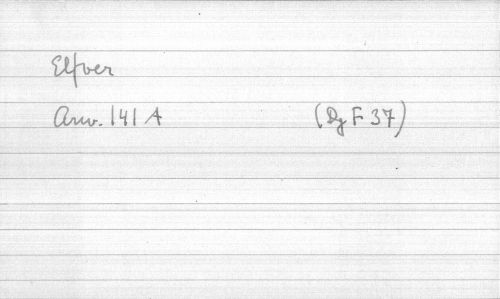 Elfver
Arw. 141 A (Dg F 37)